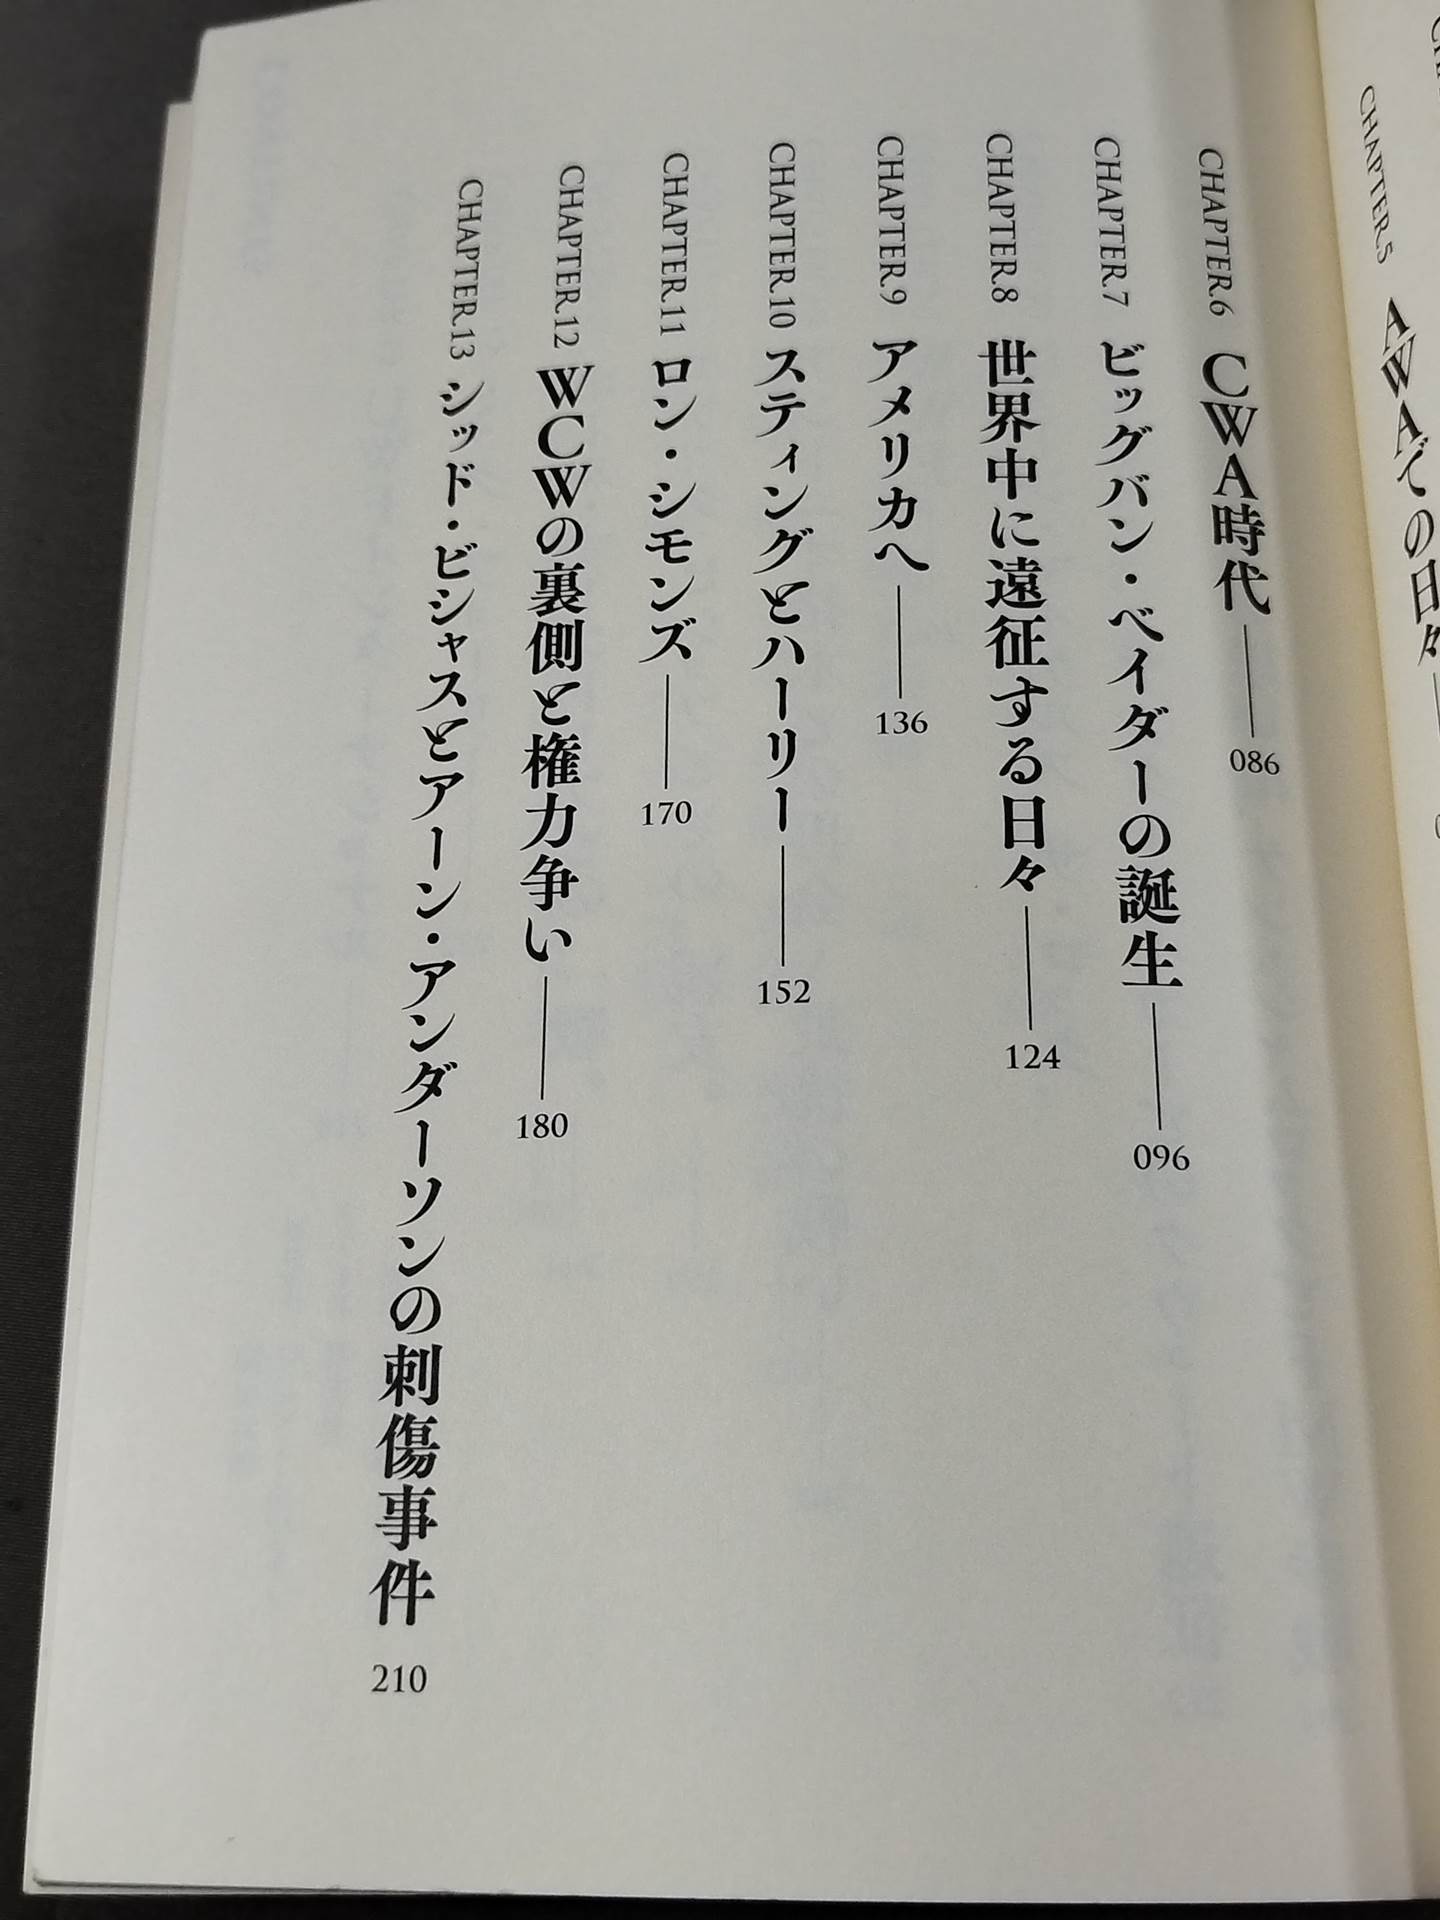 CHAPTER.5 AWAでの日々
CHAPTER.6 CWA時代――086
CHAPTER.7 ビッグバン・ベイダーの誕生――096
CHAPTER.8 世界中に遠征する日々――124
CHAPTER.9 アメリカへ――136
CHAPTER.10 スティングとハーリー――152
CHAPTER.11 ロン・シモンズ――170
CHAPTER.12 WCWの裏側と権力争い――180
CHAPTER.13 シッド・ビシャスとアーン・アンダーソンの刺傷事件 210